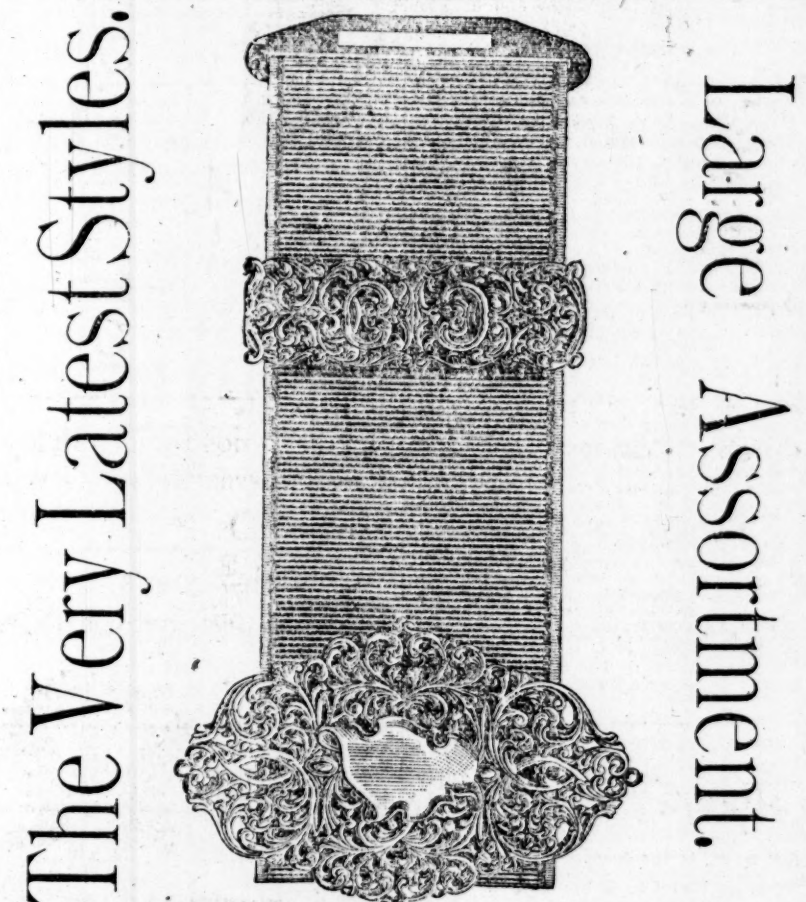 The Very Latest Styles.
Large Assortment.